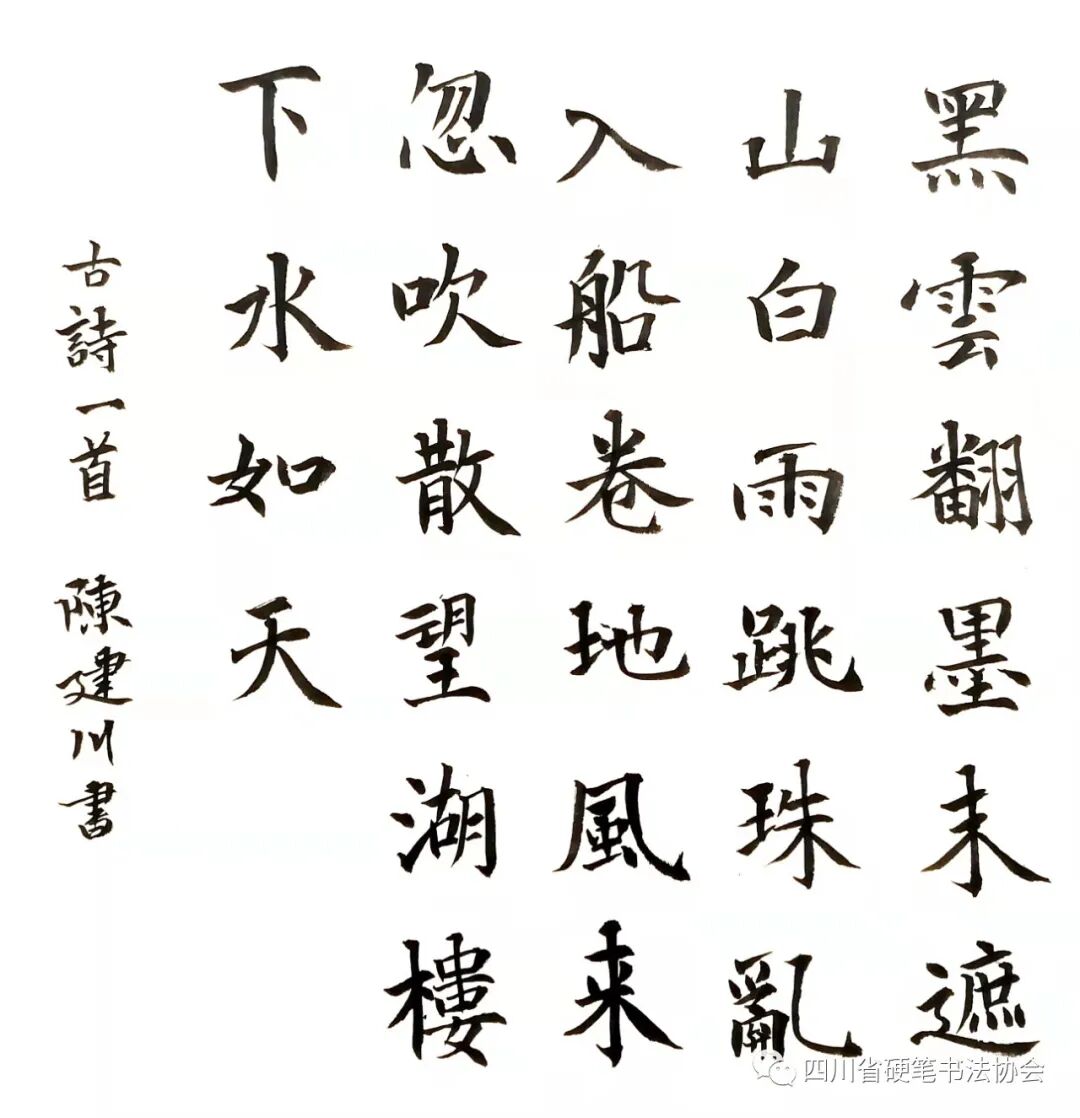 黑雲翻墨未遮
山白雨跳珠亂
入船卷地風来
忽吹散望湖樓
下水如天
古詩一首 陳建川書
四川省硬笔书法协会